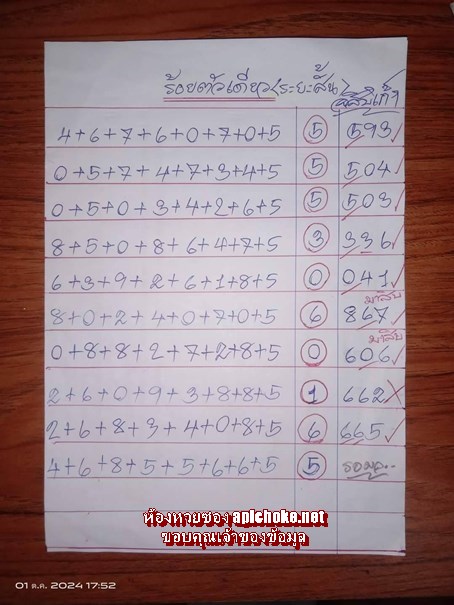 ร้อยตัวเดียว(ระยะสั้น)
4+6+7+6+0+7+0+5 5 593✓
0+5+7+4+7+3+4+5 5 504✓
0+5+0+3+4+2+6+5 5 503✓
8+5+0+8+6+4+7+5 3 336✓
6+3+9+2+6+1+8+5 0 041✓
มาสิบ
8+0+2+4+0+7+0+5 6 867✓
มาสิบ
0+8+8+2+7+2+8+5 0 606✓
2+6+0+9+3+8+8+5 1 662✗
2+6+8+3+4+0+8+5 6 665✓
4+6+8+5+5+6+6+5 5 รอผล..
ห้องหวยซอง apichoke.net
ขอบคุณเจ้าของข้อมูล
01 ต.ค. 2024 17:52